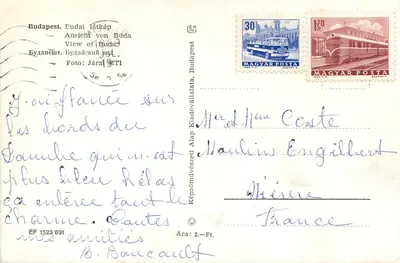 Budapest. Budai látkép
Ansicht von Buda
View of Buda
Будапешт. Будайский вид
Foto: Járai MTI
30f
MAGYAR POSTA
1,70 Ft
MAGYAR POSTA
sur
les bords du
Danube qui n'est
plus bleu hélas
ça enlève tout le
charme. Toutes
mes amitiés
B. Boucault
EF 1523 691
Ára: 2.-Ft.
Képzőművészeti Alap Kiadóvállalata, Budapest
Mr et Mme Coste
Moulins Engilbert
Nièvre
France